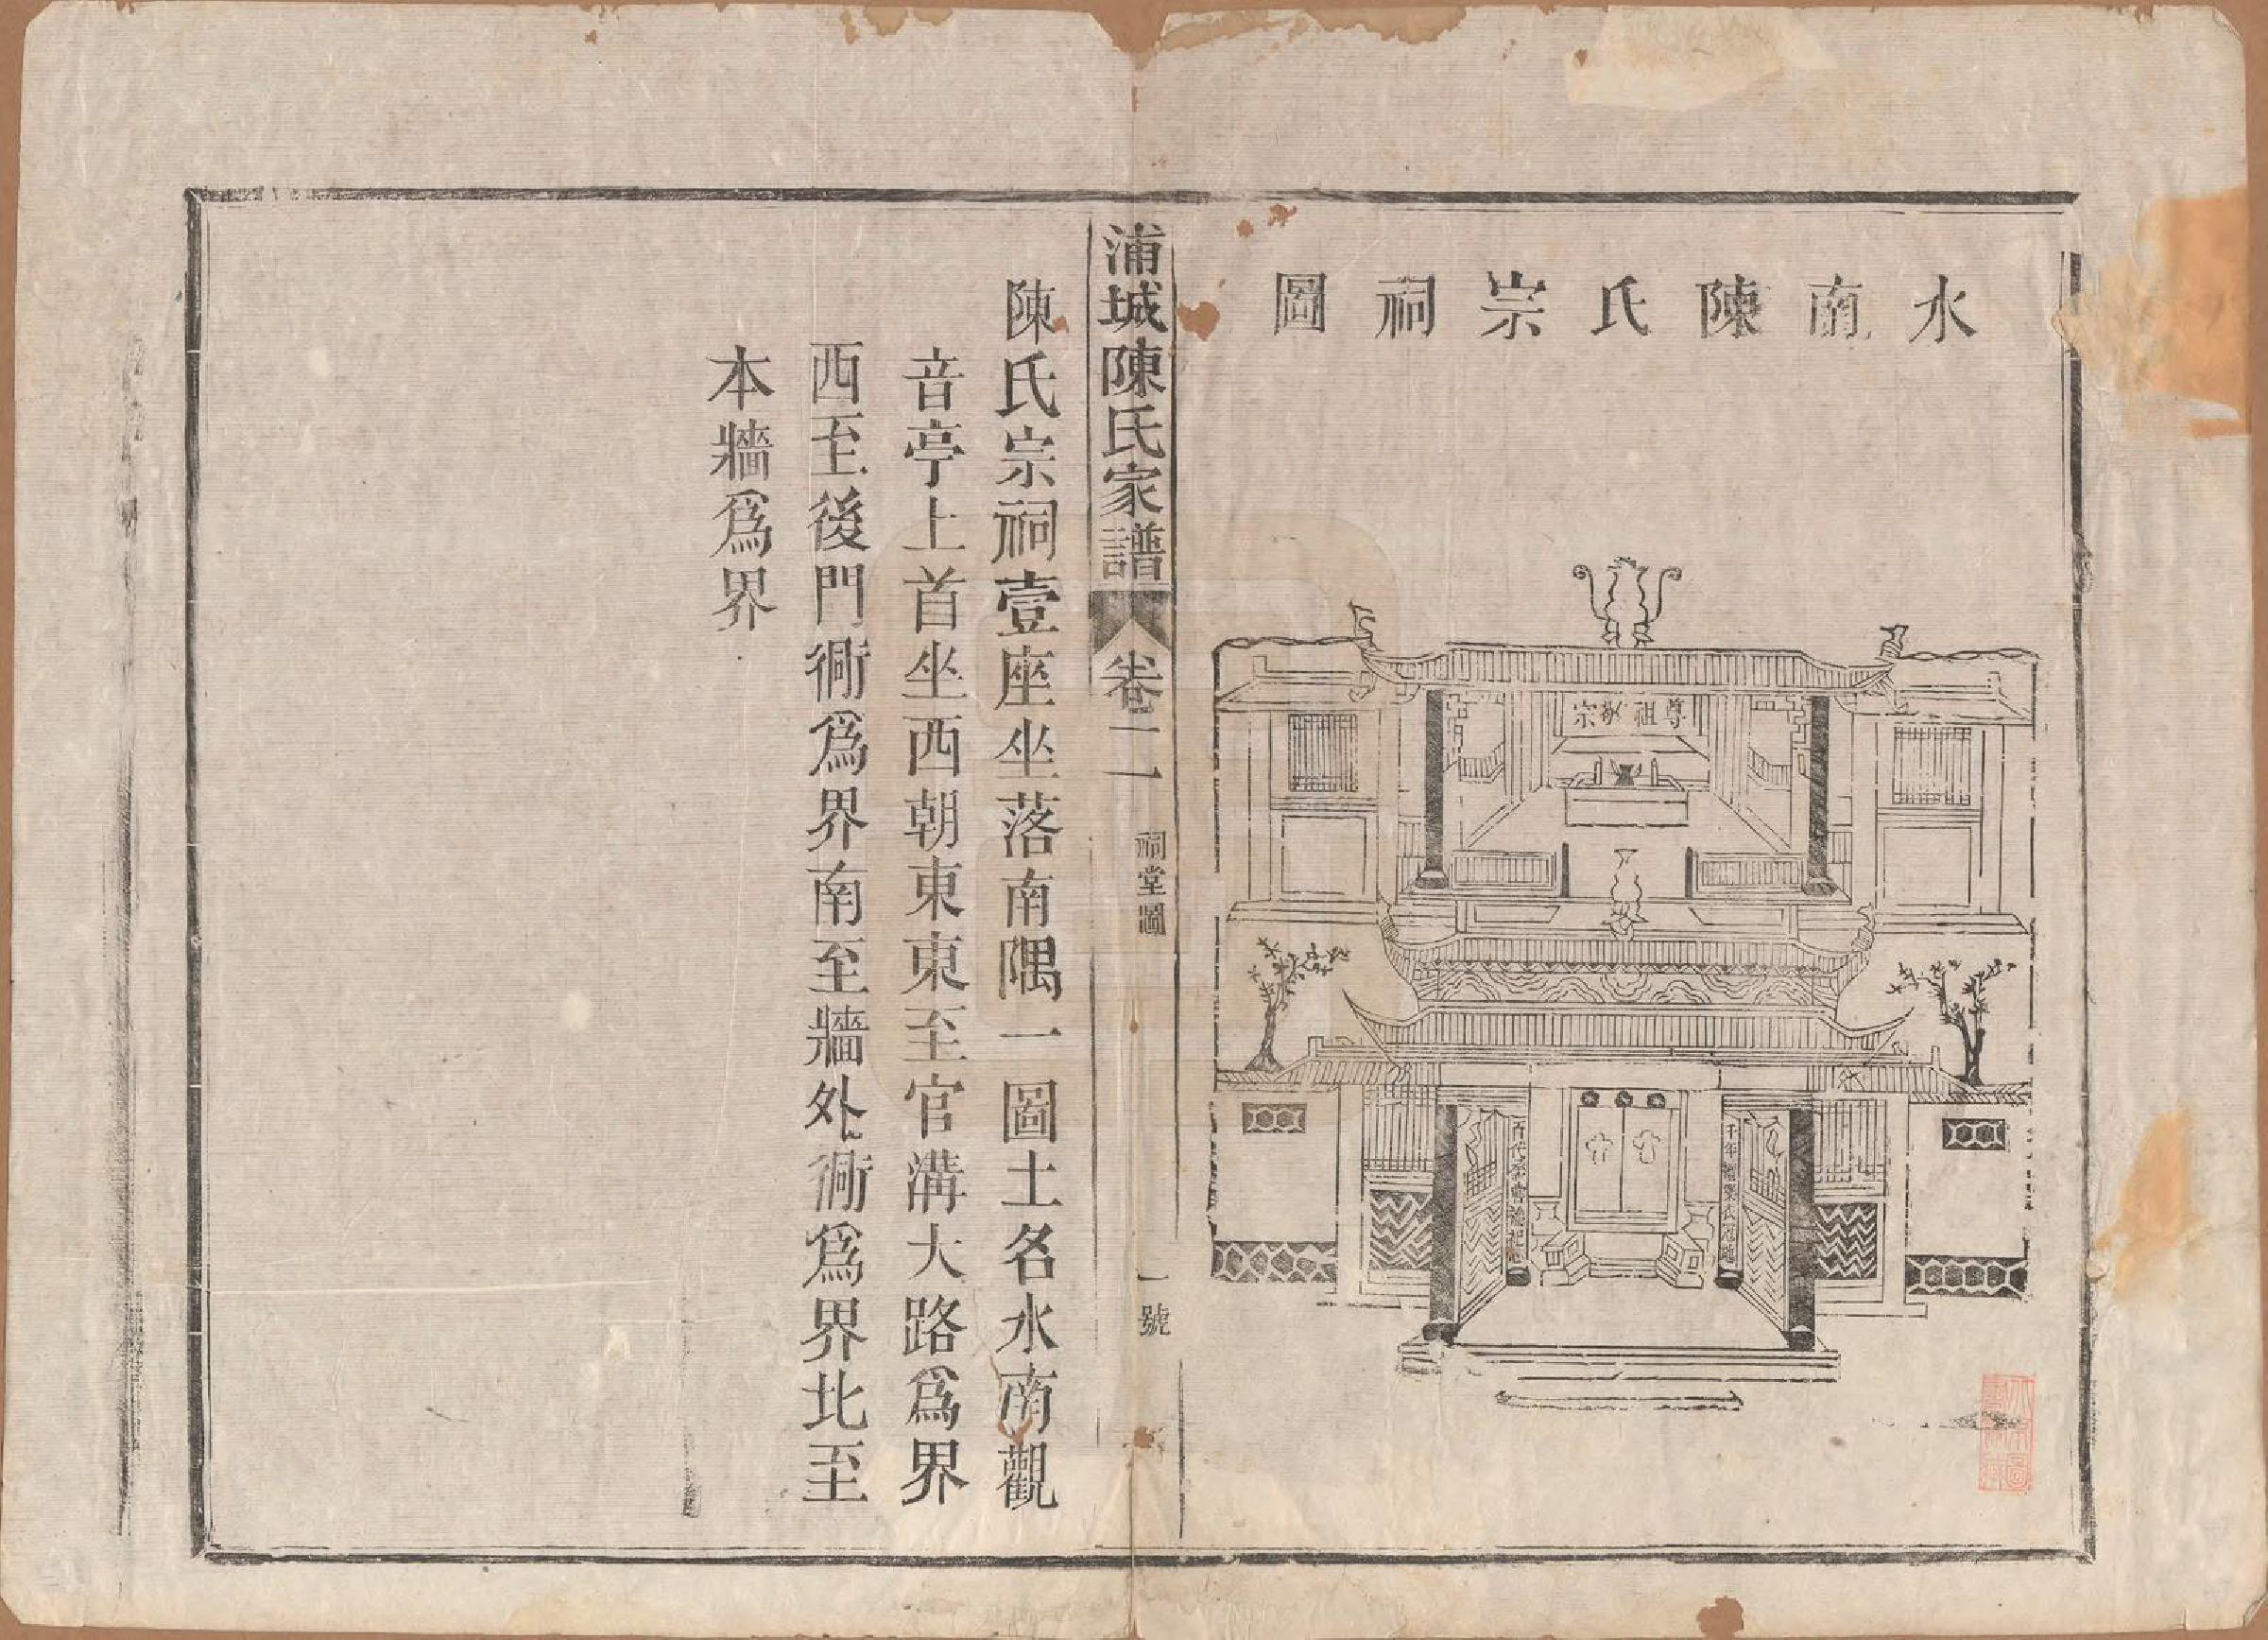 水南陳氏宗祠圖
尊祖敬宗
千年禮樂衣冠地
百代烝嘗禮祀
浦城陳氏家譜
卷二
祠堂圖
一號
陳氏宗祠壹座坐落南隅一圖土名水南觀
音亭上首坐西朝東東至官溝大路爲界
西至後門衕爲界南至牆外衕爲界北至
本牆爲界